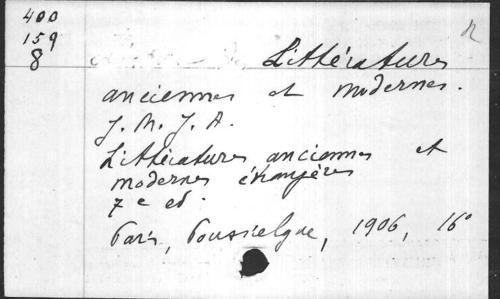 400
159
8
Littératures
anciennes et modernes.
J. M. J. A.
Littératures anciennes et
modernes étrangères
7e ed.
Paris, Poussielgue, 1906, 16°